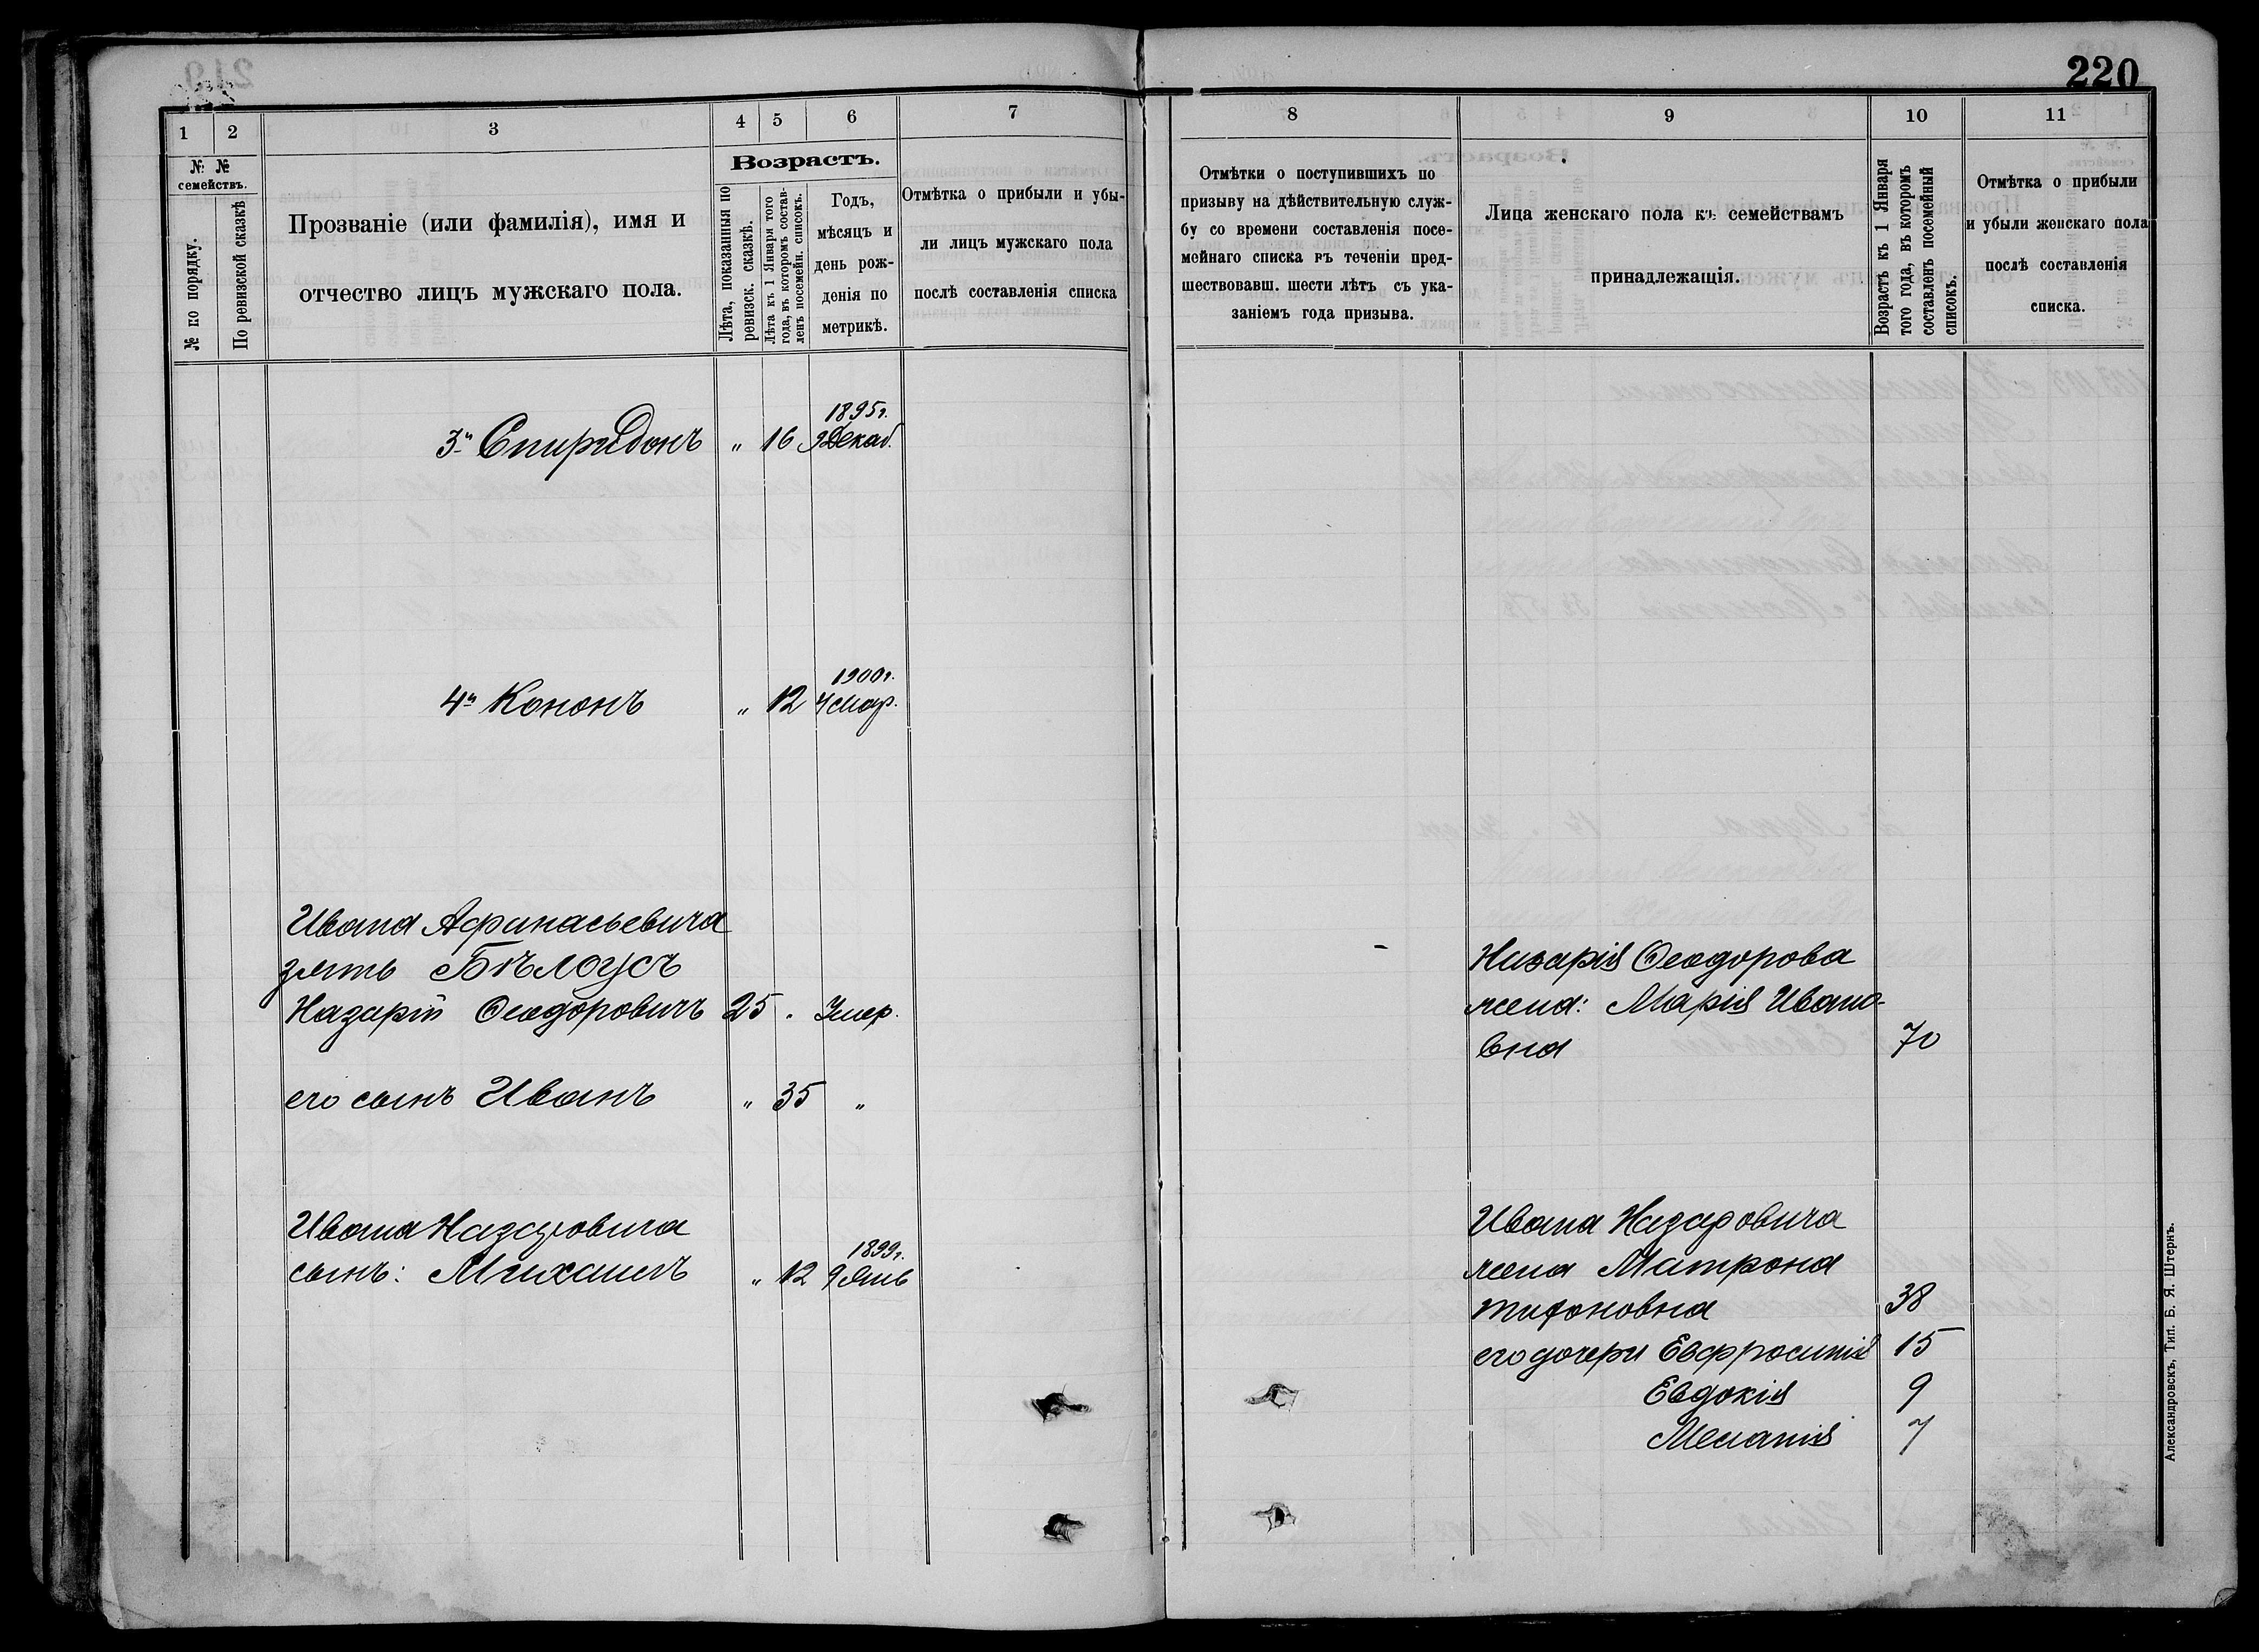 220
1 2 3 4 5 6 7
№ № семействъ.
№ по порядку.
По ревизской сказкѣ
Прозваніе (или фамилія), имя и
отчество лицъ мужскаго пола.
Возрастъ.
Лѣта, показанныя по
ревизск. сказкѣ.
Лѣта къ 1 Января того
года, въ которомъ состав-
ленъ посемейн. списокъ.
Годъ,
мѣсяцъ и
день рож-
денія по
метрикѣ.
Отмѣтка о прибыли и убы-
ли лицъ мужскаго пола
послѣ составленія списка
3й Спиридонъ „ 16 1895г.
9 Декаб.
4й Кононъ „ 12 1900г.
4 Мар.
Ивана Афанасьевича
зять Бѣлоусъ
Назарій Ѳеодоровичъ 25 „ Умер.
его сынъ Иванъ „ 35 „
Ивана Назаровича
сынъ: Михаилъ „ 12 1899г.
9 Янв
8 9 10 11
Отмѣтки о поступившихъ по
призыву на дѣйствительную служ-
бу со времени составленія посе-
мейнаго списка въ теченіи пред-
шествовавш. шести лѣтъ съ ука-
заніемъ года призыва.
Лица женскаго пола къ семействамъ
принадлежащія.
Возрастъ къ 1 Января
того года, въ которомъ
составленъ посемейный
списокъ.
Отмѣтка о прибыли
и убыли женскаго пола
послѣ составленія
списка.
Назарія Ѳеодорова
жена: Марія Ивано-
вна 70
Ивана Назаровича
жена Матрона
Тифоновна 38
его дочери Евфросинія 15
Евдокія 9
Меланія 7
Александровскъ, Тип. Б. Я. Штернъ.